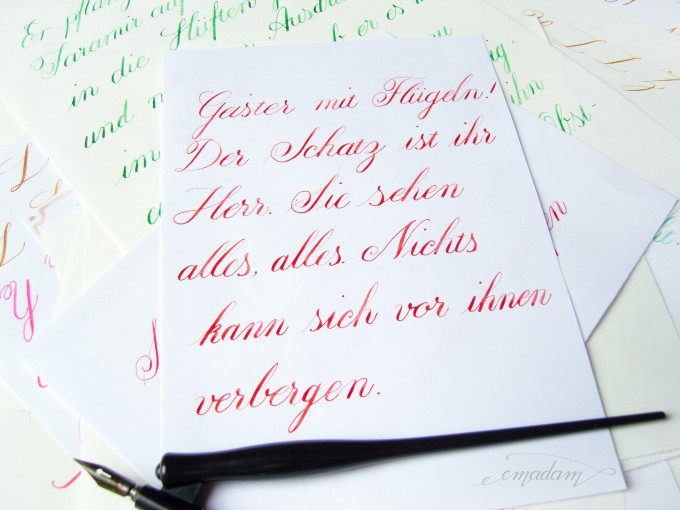 Geister mit Flügeln!
Der Schatz ist ihr
Herr. Sie sehen
alles, alles. Nichts
kann sich vor ihnen
verbergen.
Er pflanz
Faramir auf
in die Hüften
und n
im
Ausdru
er es
ihn
obst-
emadam